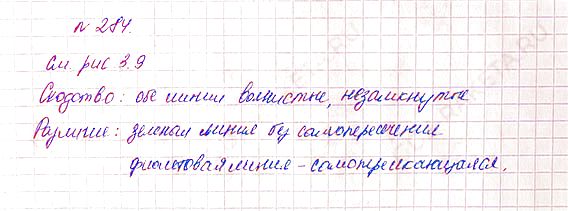 № 284.
См. рис 3.9
Сходство: обе линии волнистые, незамкнутые
Различие: зеленая линия без самопересечения
фиолетовая линия - самопересекающаяся.